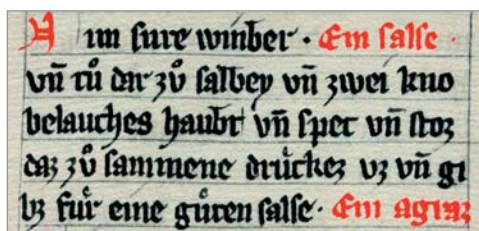 Nim sure winber · Ein salse ·
vñ tů dar zů salbey vñ zwei kno
belauches haubt vñ spec vñ stoz
daz zů sammene drückez vz vñ gi
bz für eine gůten salse · Ein agraz